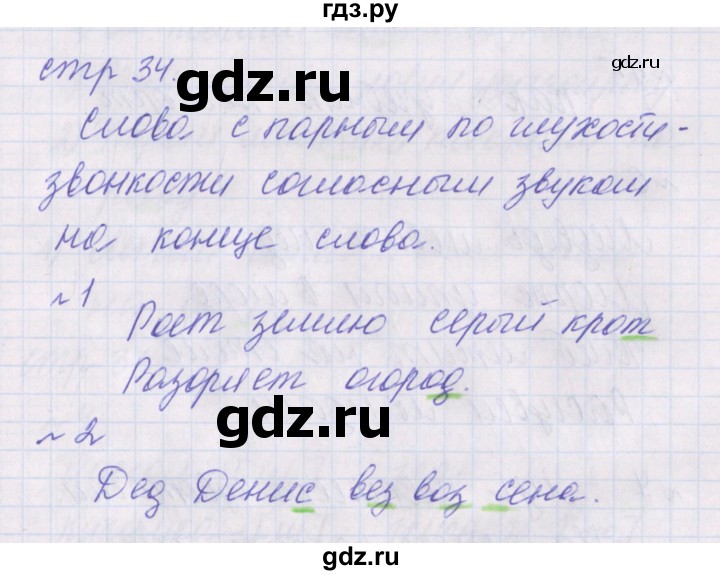 гдз.ру
gdz.ru
стр 34.
gdz.ru
Слова с парным по глухости-
звонкости согласным звуком
на конце слова.
№1
gdz.ru
Роет землю серый крот
Разоряет огород.
gdz.ru
№2
Дед Денис вез воз сена.
gdz.ru